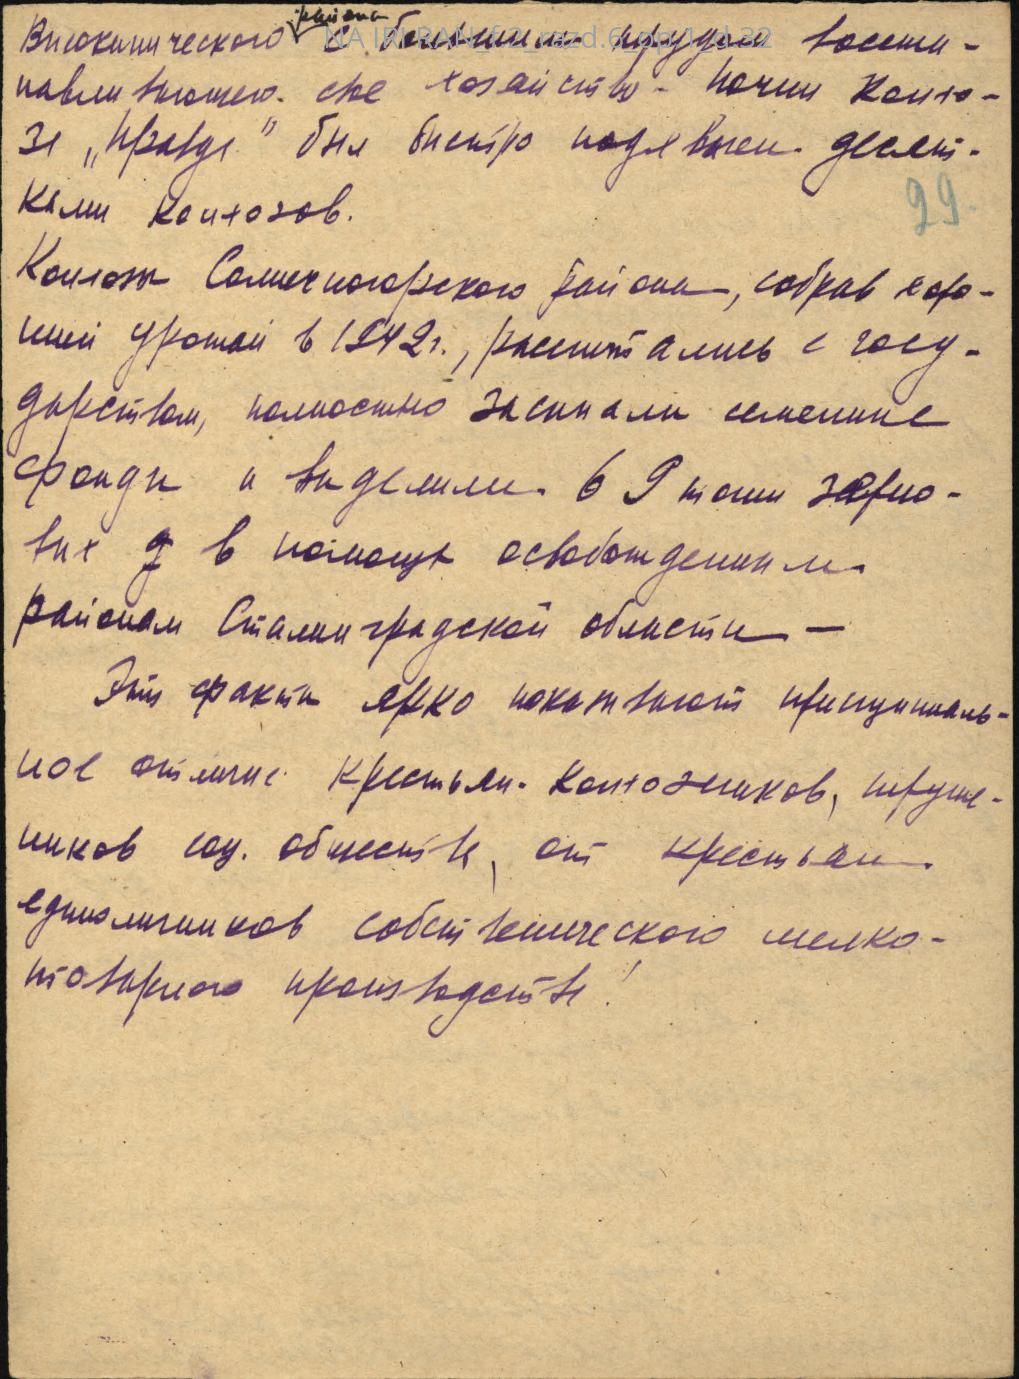 Высокинического района с большим трудом восста-
навливающего свое хозяйство. Почин колхо-
за „Правда" был быстро подхвачен десят-
ками колхозов.
29.
Колхозы Солнечногорского района, собрав хоро-
ший урожай в 1942 г., рассчитались с госу-
дарством, полностью засыпали семенные
фонды и выделили 69 тонн зерно-
вых в помощь освобожденным
районам Сталинградской области —
Эти факты ярко показывают принципиаль-
ное отличие крестьян-колхозников, труже-
ников соц. общества, от крестьян
единоличников собственнического мелко-
товарного производства!
NA IRI RAN. f.2 razd.6 op.1 d.32